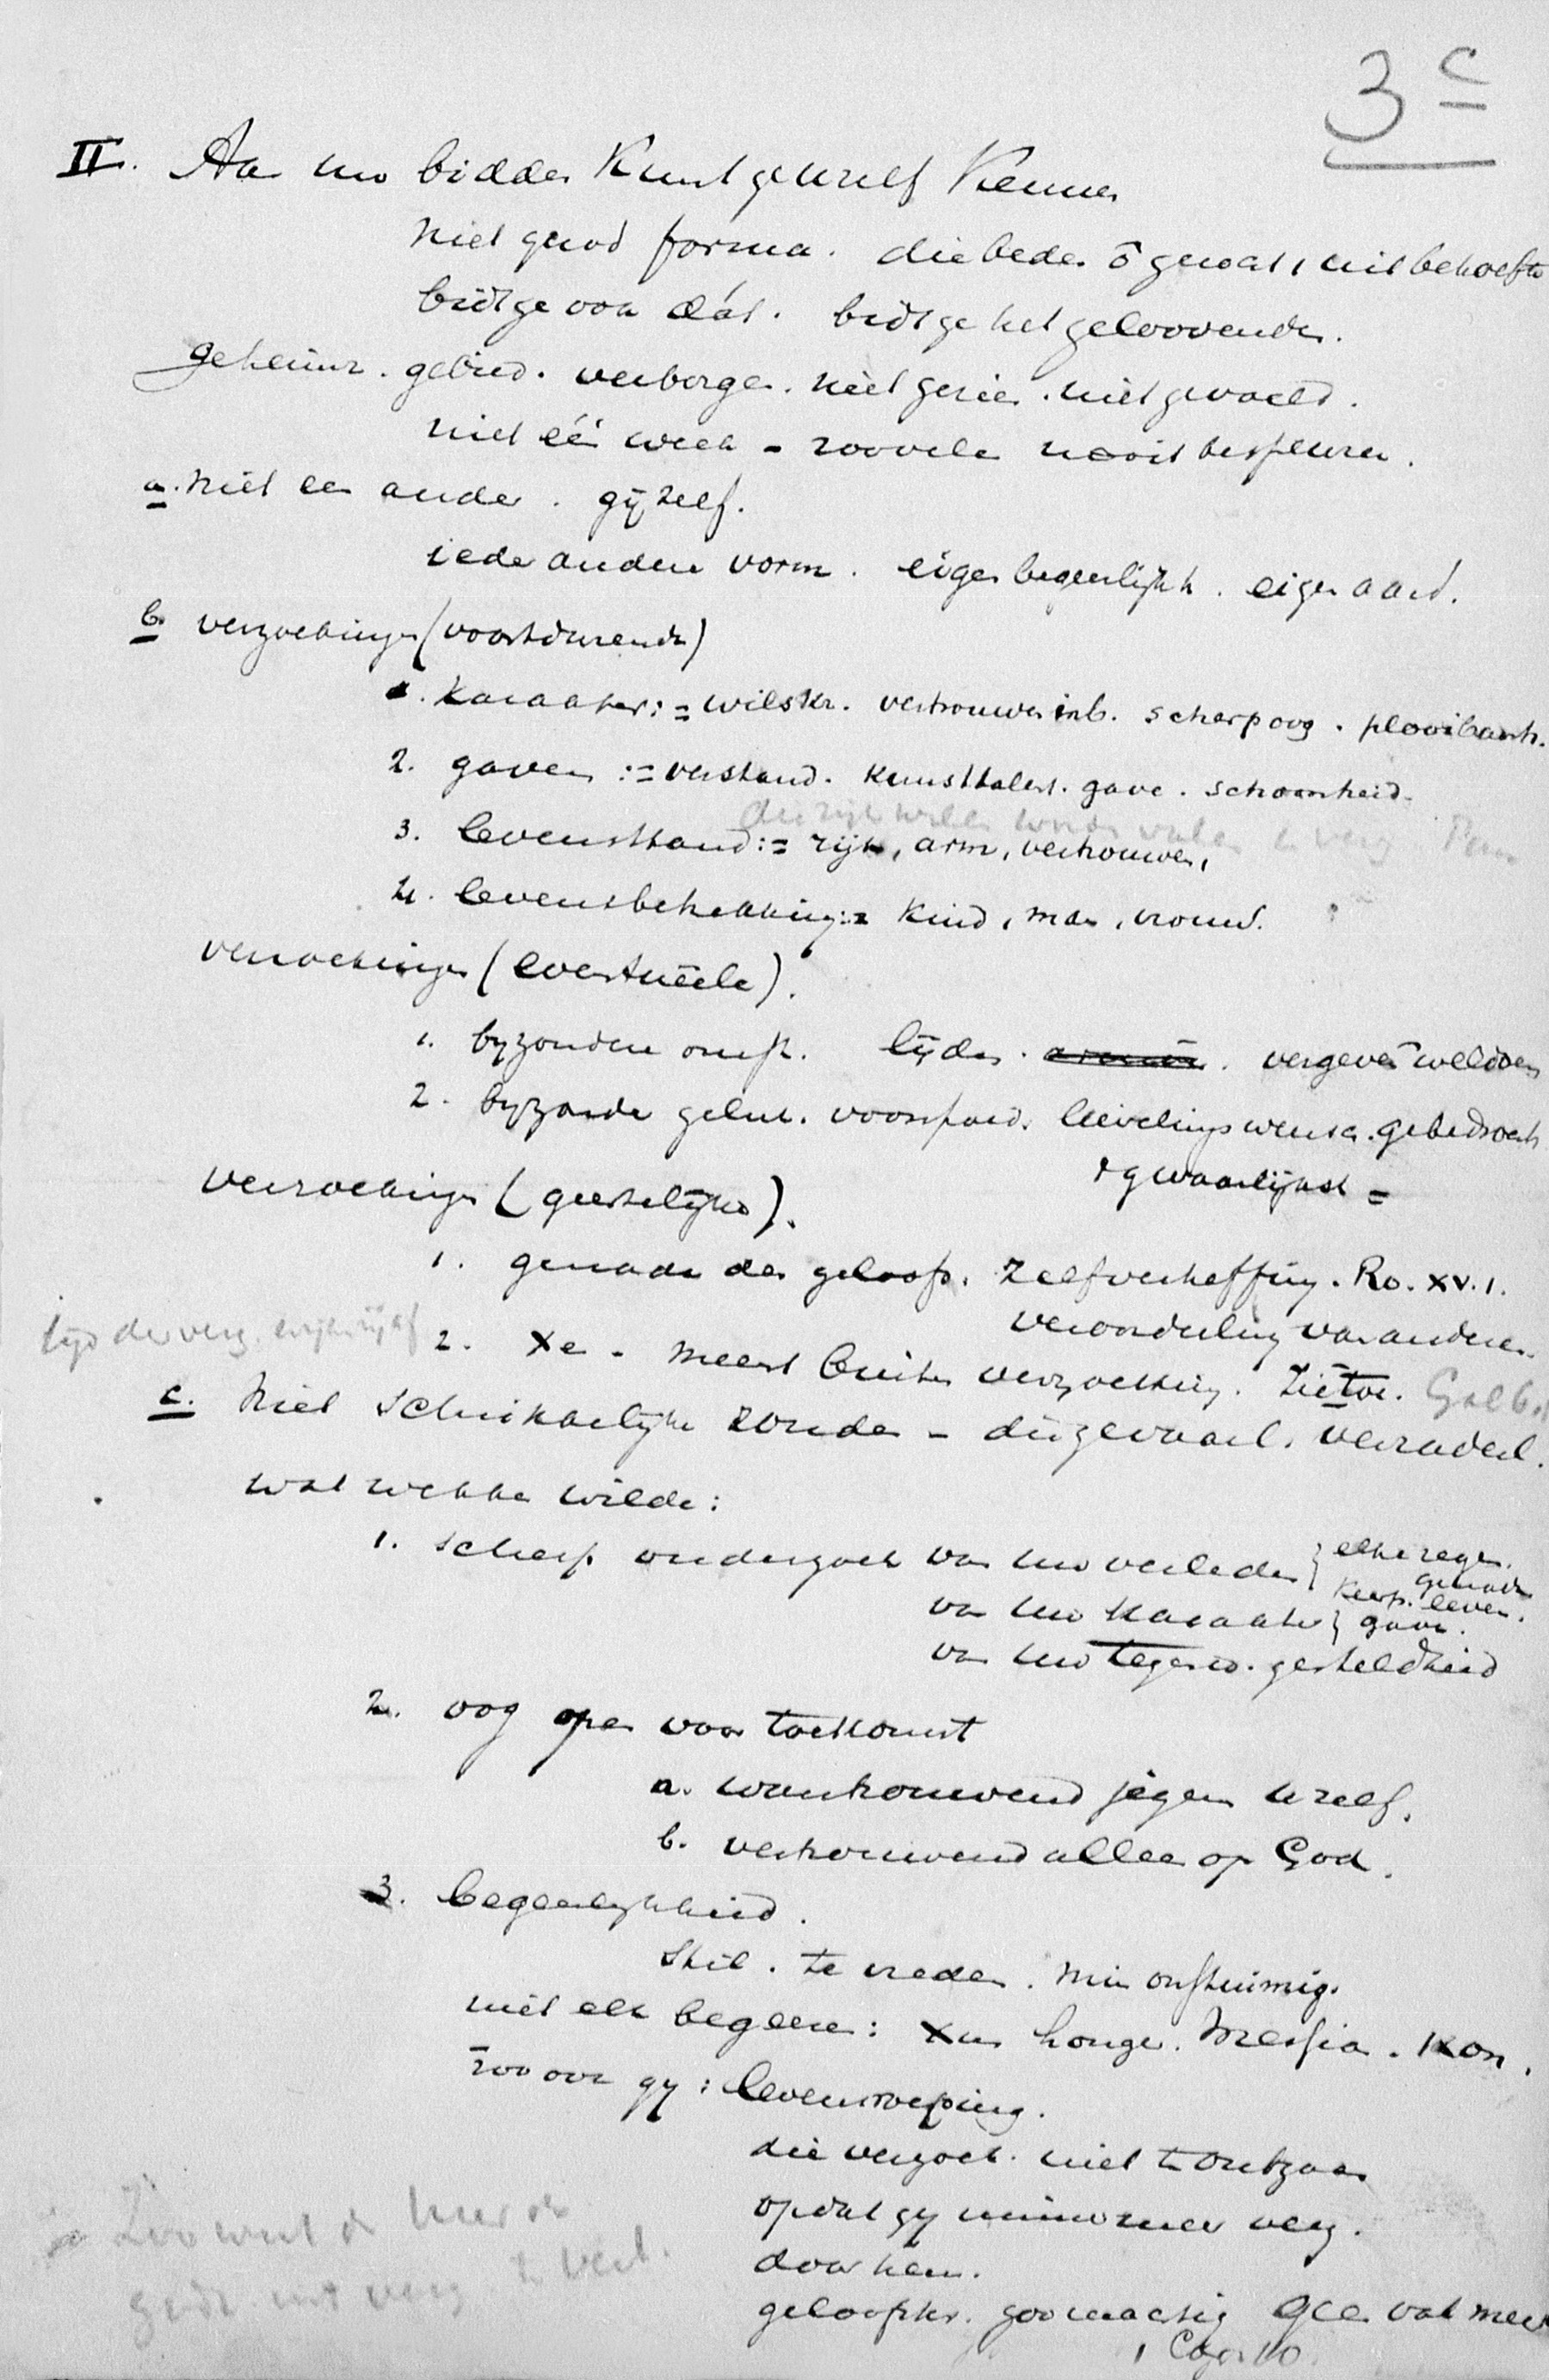 3 c
II. Aan uw bidden Kunt ge uzelf Kennen
niet quod forma. die bede ō gewoont, uit behoefte
bidt ge ook dát. bidt ge het geloovende.
geheimz. gebied. verborgen. niet gezien. niet gevoeld.
niet éé week - zoovele nooit bespeuren.
a. niet een ander. gij zelf.
ieder andere vorm. eigen begeerlijkh. eigen aard.
b. verzoekingen (voortdurende)
1. Karaakter: = wilskr. vertrouwen inb. scherp oog. plooibaarh.
2. gaven := verstand. Kunsttalent. gave. schoonheid.
die rijk willen worden vallen in verz.
3. levensstand := rijk, arm, vertrouwen,
4. levensbetrekking := Kind, man, vrouw.
verzoekingen (eventuëele).
1. byzondere omst. lijden. vergeven weldoen
2. byzonder geluk. voorspoed. lievelingswensch. gebedsverh.
gevaarlijkst =
verzoekingen (geestelijke).
1. genade des geloofs. Zelfverheffing. Ro. XV. 1.
veroordeeling van anderen.
tijd der verz.
2. Xe - meest buiten verzoeking. Ziet toe. Gal 6.1
c. niet schrikkelijke zonden - die gevaarl. verraderl.
wat wekken wilde:
1. scherp onderzoek van uw verleden } elke zegen.
genade
Kerk. leven.
van uw Karaakter } gave.
van uw tegenw. gesteldheid
2. oog open voor toekomst
a. wantrouwend jegens uzelf.
b. vertrouwend alleen op God.
3. begeerlykheid.
stil. te vreden. min onstuimig.
niet elk begeeren: Xus honger. Messia. Kon.
zoo ook gy: levensroeping.
die verzoek. niet te ontgaan
opdat gy nimmermeer verz.
door hem.
geloofskr. zoo machtig Geen val meer
1 Cor 10.
Zoo weet de Heer de
godz. uit verz te verl.